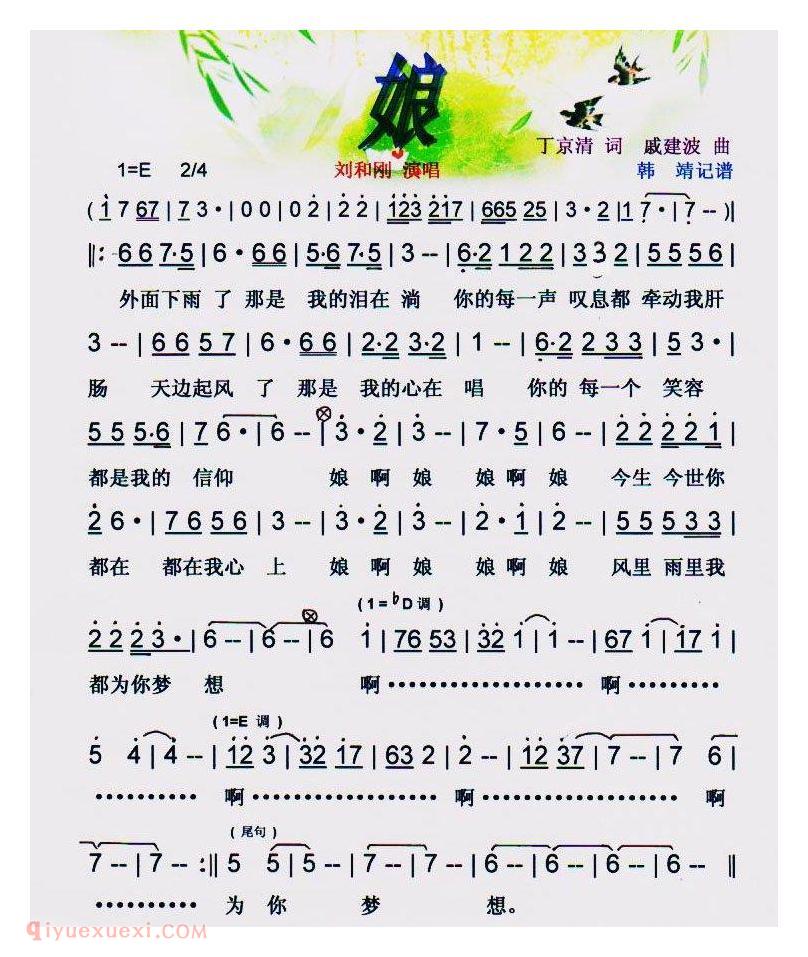 娘
丁京清 词 戚建波 曲
1=E 2/4 刘和刚 演唱 韩 靖记谱
( 1 7 67 | 7 3 · | 0 0 | 0 2 | 2 2 | 123 217 | 665 25 | 3 · 2 | 1 7 · | 7 -- ) |
‖: 6 6 7·5 | 6 · 6 6 | 5·6 7·5 | 3 -- | 6·2 1 2 2 | 3 3 2 | 5 5 5 6 |
外面下雨 了 那是 我的泪在 淌 你的每一声 叹息都 牵动我肝
3 -- | 6 6 5 7 | 6 · 6 6 | 2·2 3·2 | 1 -- | 6·2 2 3 3 | 5 3 · |
肠 天边起风 了 那是 我的心在 唱 你的 每一个 笑容
5 5 5·6 | 7 6 · | 6 -- | 3 · 2 | 3 -- | 7 · 5 | 6 -- | 2 2 2 1 |
都是我的 信仰 娘 啊 娘 娘 啊 娘 今生 今世你
2 6 · | 7 6 5 6 | 3 -- | 3 · 2 | 3 -- | 2 · 1 | 2 -- | 5 5 5 3 3 |
都在 都在我心 上 娘 啊 娘 娘 啊 娘 风里 雨里我
(1=♭D调)
2 2 2 3 · | 6 -- | 6 -- | 6 1 | 76 53 | 32 1 | 1 -- | 67 1 | 17 1 |
都为你梦 想 啊··················· 啊·········
(1=E 调)
5 4 | 4 -- | 12 3 | 32 17 | 63 2 | 2 -- | 12 37 | 7 -- | 7 6 |
·········· 啊·················· 啊··················· 啊
(尾句)
7 -- | 7 -- :‖ 5 5 | 5 -- | 7 -- | 7 -- | 6 -- | 6 -- | 6 -- ‖
·········· 为 你 梦 想。
qiyuexuexi.COM